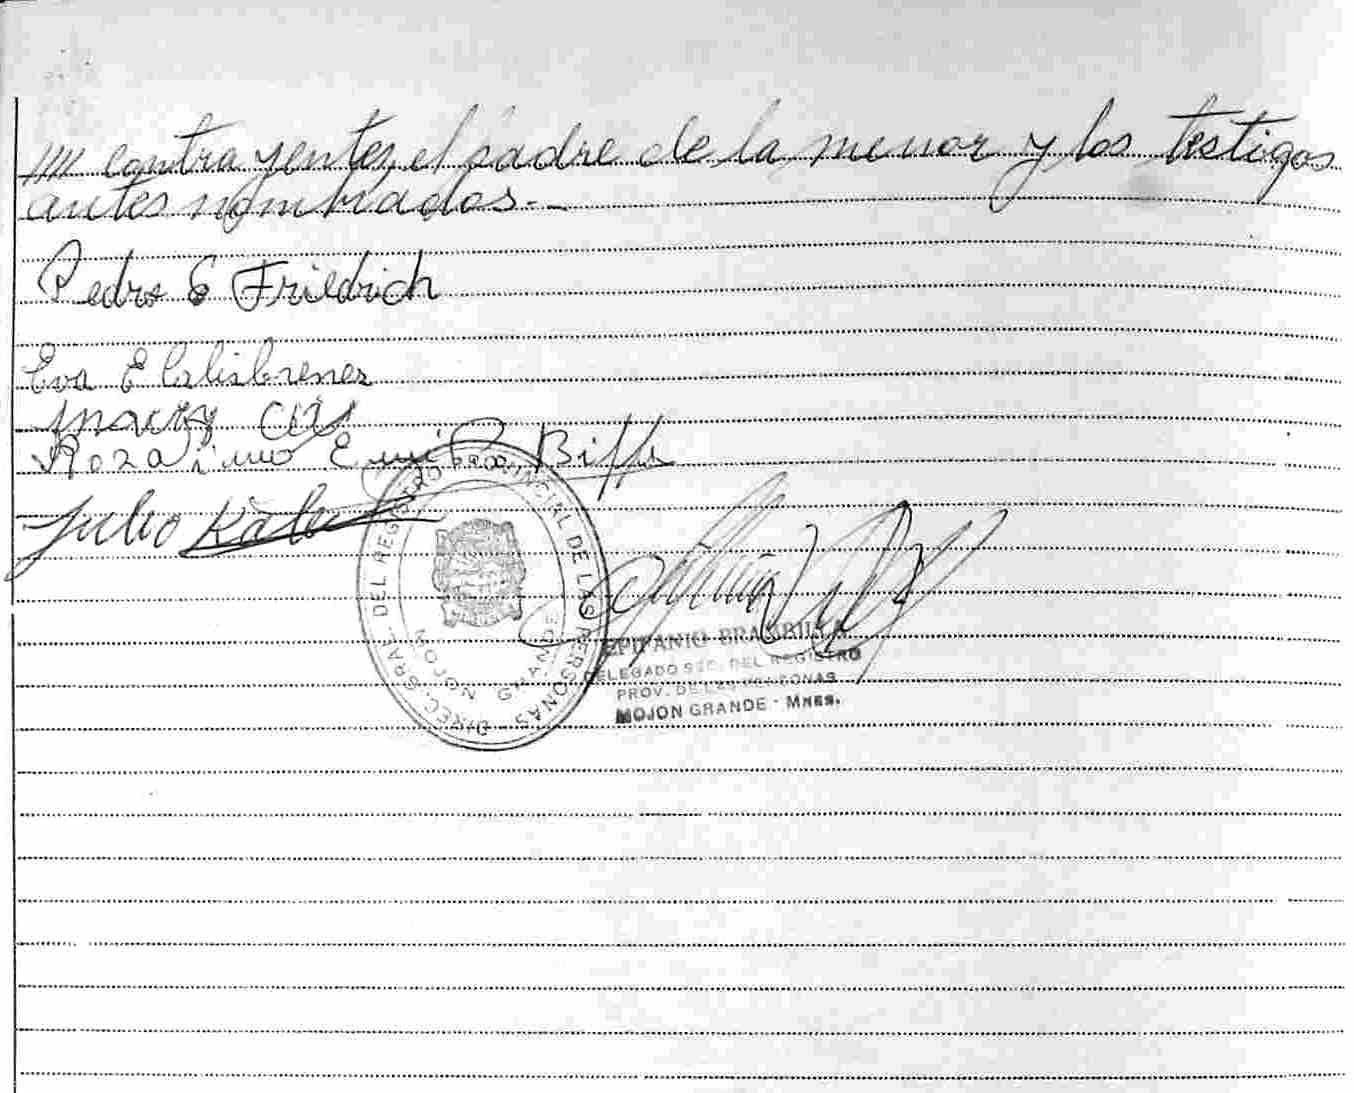 //// contrayentes, el padre de la menor y los testigos
antes nombrados.--
Pedro E Friedrich
Eva E
Rozalino Emilio
Julio
DIREC. GRAL. DEL REGISTRO PROVINCIAL DE LAS PERSONAS
MOJON GRANDE
EPIFANIO BRAMBILLA
DELEGADO DEL REGISTRO
PROV. DE LAS PERSONAS
MOJON GRANDE - MNES.